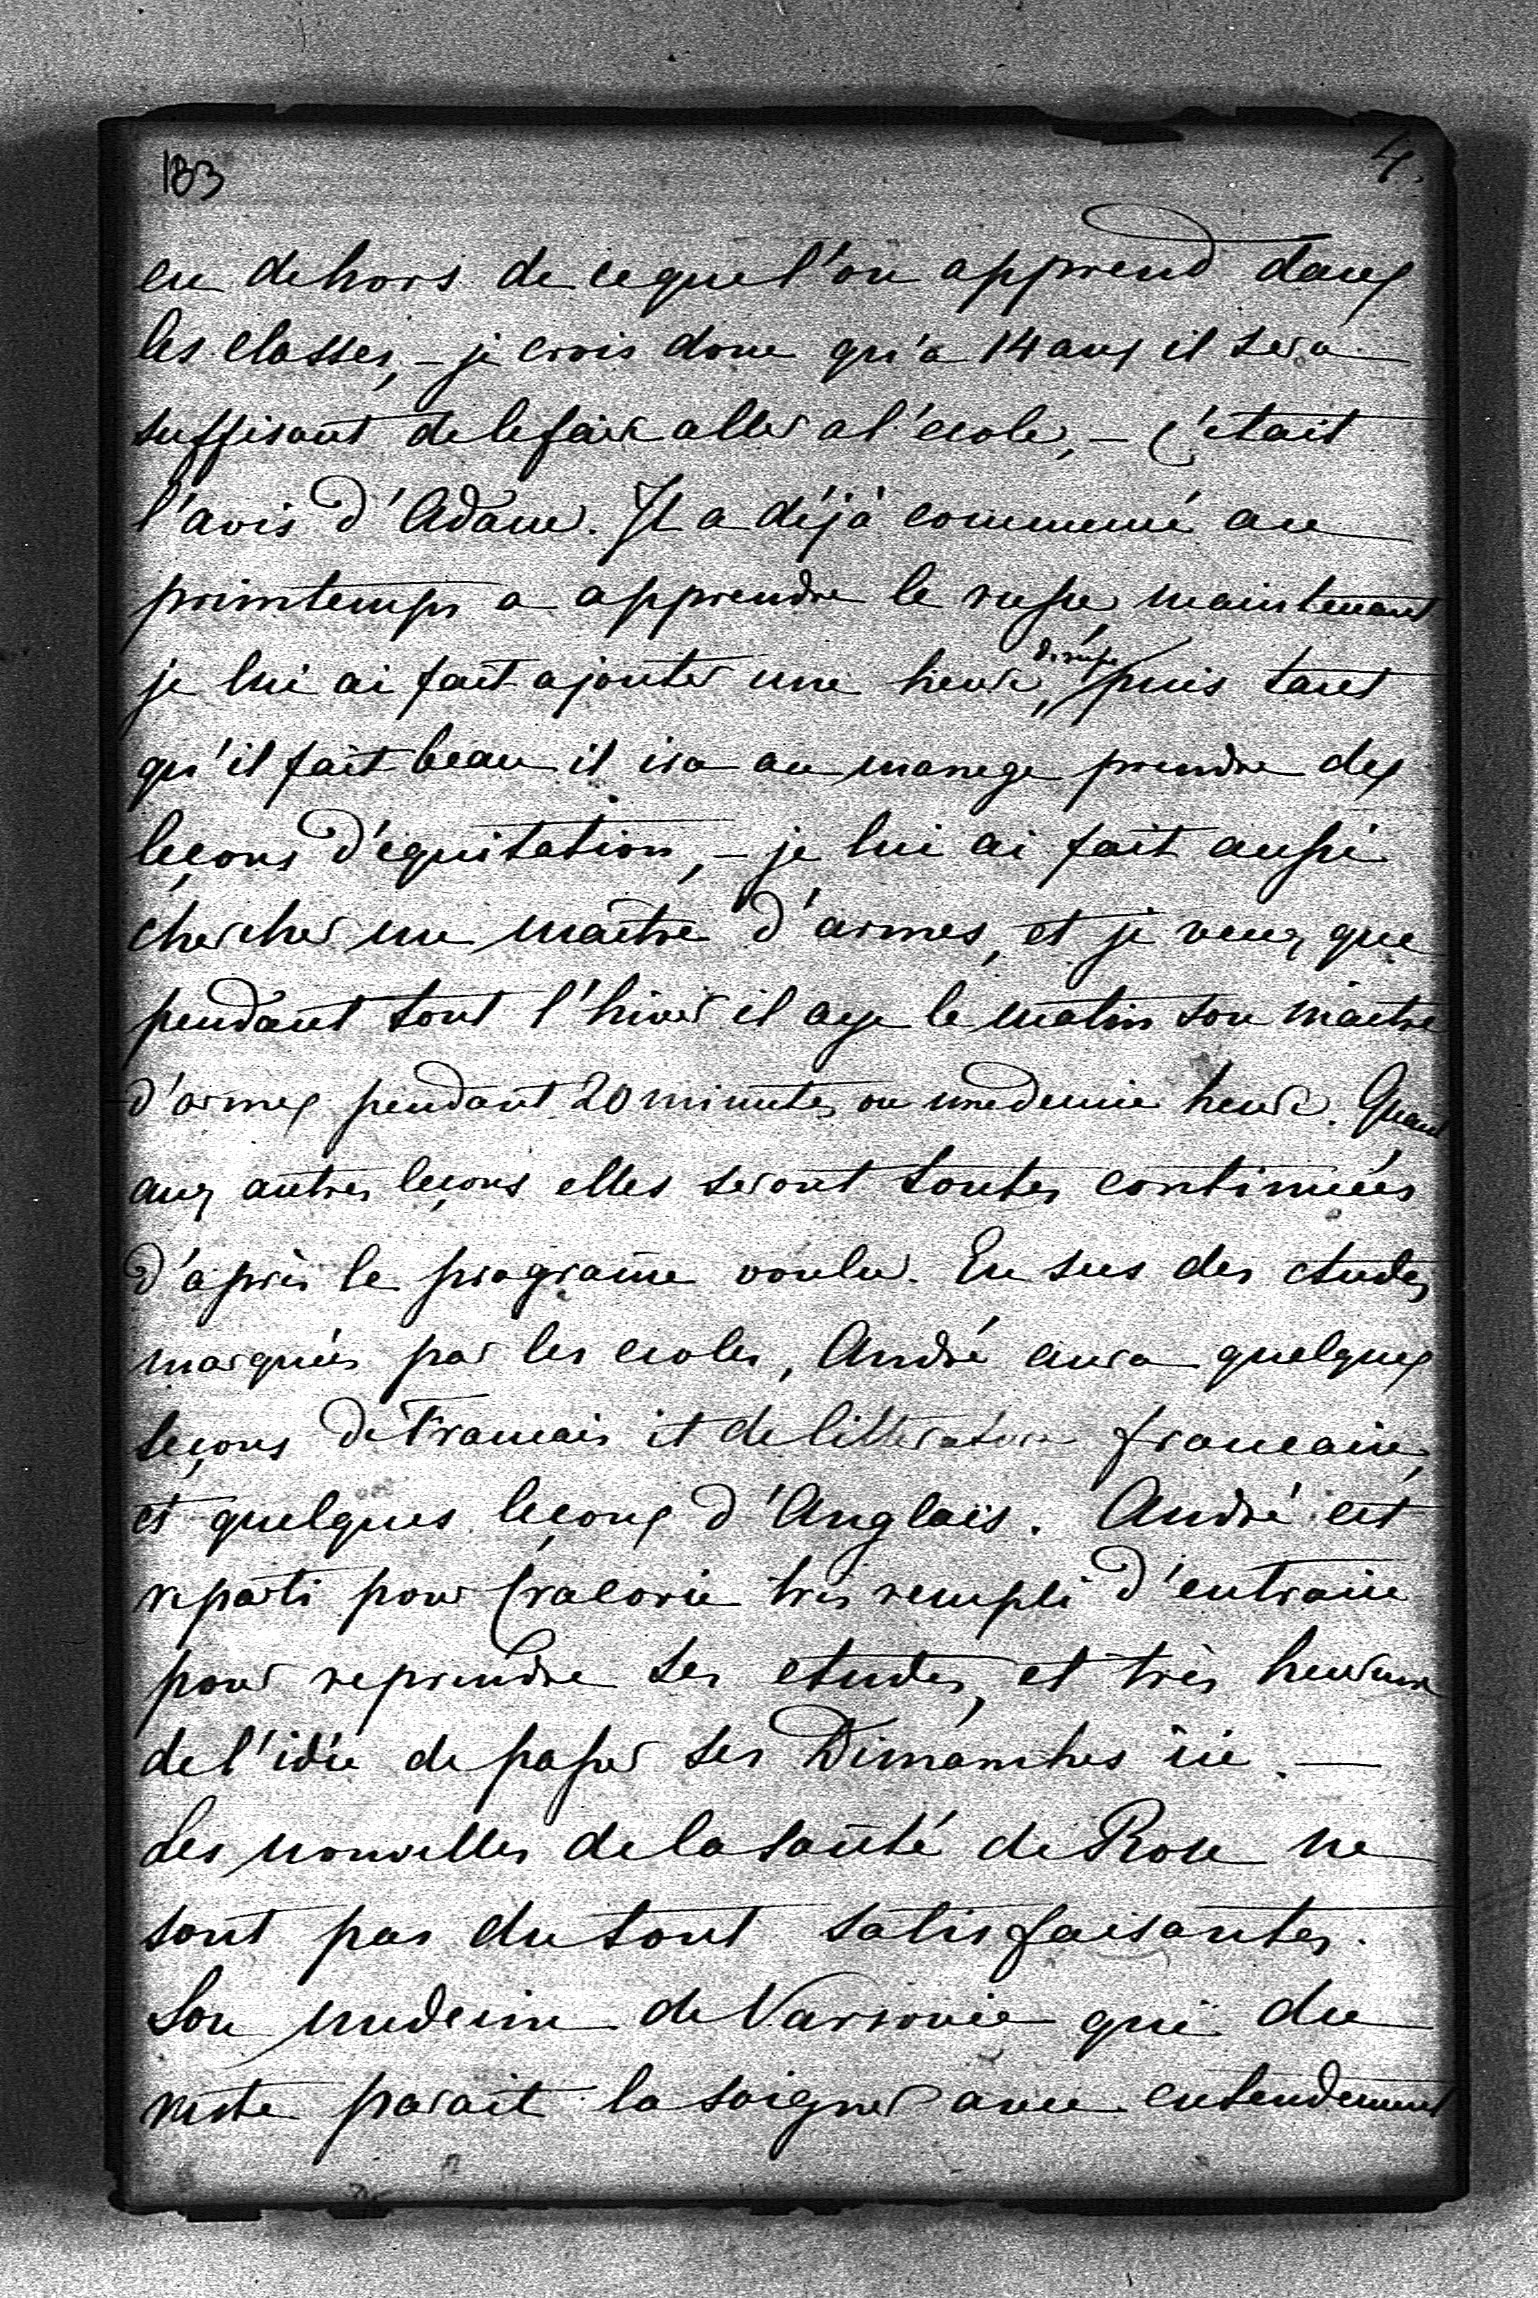 183
4.
en dehors de ce que l'on apprend dans
les classes, – je crois donc qu'a 14 ans il sera
suffisant de le faire aller a l'école, – C'était
l'avis d'Adam. Il a déjà commencé au
printemps a apprendre le russe, maintenant
je lui ai fait ajouter une heure de russe puis tant
qu'il fait beau il ira au manege prendre des
leçons d'équitation, – je lui ai fait aussi
chercher un maître d'armes, et je veux que
pendant tout l'hiver il aye le matin son maitre
d'armes pendant 20 minutes ou une demie heure. Quant
aux autres leçons elles seront toutes continuées
d'après le programe voulu. En sus des etudes
marquées par les ecoles, André aura quelques
leçons de Francais et de littérature francaise,
et quelques leçons d'Anglais. André est
reparti pour Cracovie très rempli d'entraine
pour reprendre ses etudes, et très heureux
de l'idée de passer ses Dimanches ici. —
Les nouvelles de la santé de Rose ne
sont pas du tout satisfaisantes.
Son medecin de Varsovie qui du
reste parait la soigner avec entendement